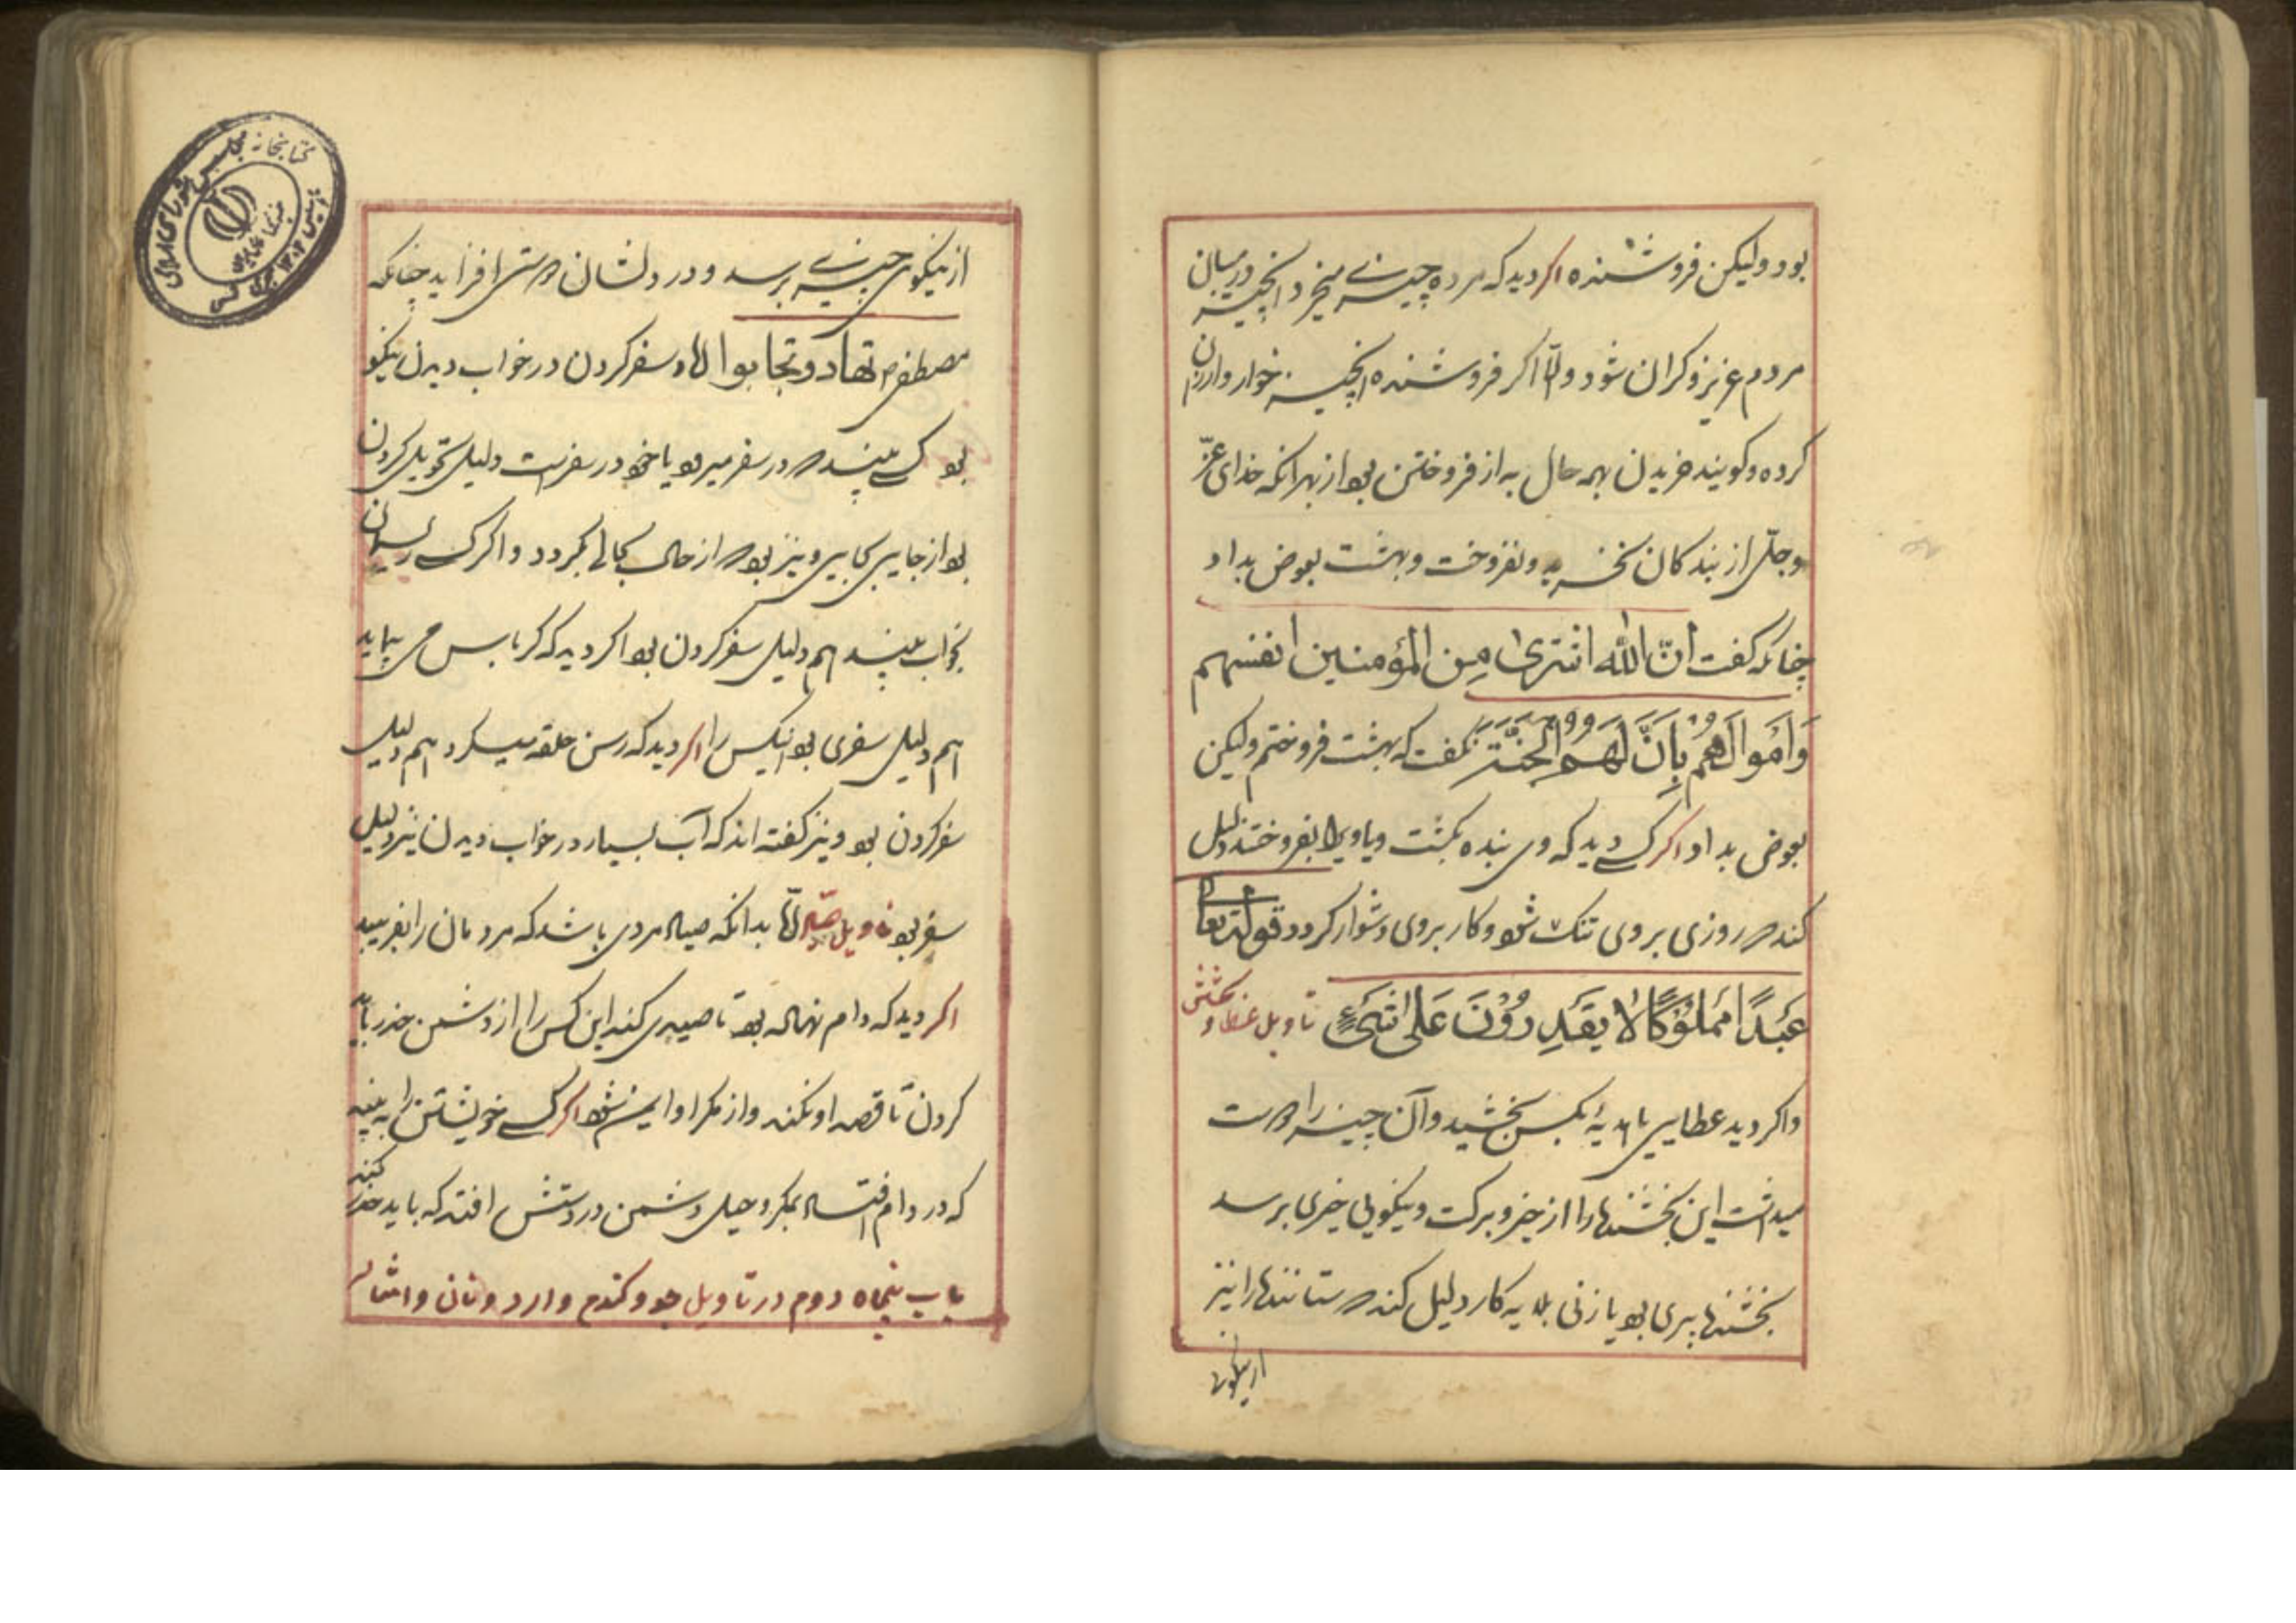 بود ولیکن فروشنده اکر دید که مرده چیزی میخرد آنچیز در میان
مردم عزیز و کران شود و امّا اکر فروشنده آنچیز خوار و ارزان
کرده و کویند خریدن بهمه حال به از فروختن بود از بهر آنکه خدای عزّ
و جلّ از بندکان بخرید و نفروخت و بهشت بعوض بداد
چنانکه کفت انّ الله اشتری من المؤمنین انفسهم
وَاَمَوالَهُم بِاَنَّ لَهُمُ الجنّة نکفت که بهشت فروختم ولیکن
بعوض بداد اکر کسی دید که وی بنده بکشت و یا ویرا بفروختند دلیل
کند که روزی بروی تنک شود و کار بروی دشوار کردد قوله تعالی
عَبدًا مَملُوکًا لا یَقدِرُونَ عَلی شَیءٍ تاویل عطا و بخشش
واکر دید عطایی یا هدیهٔ بکس بخشید و آن چیز را دوست
میداشت این بخشنده را از خیر و برکت و نیکویی خیری برسد
بخشنده پیری بود یا زنی بلایه کار دلیل کند که ستاننده را نیز
از نیکویی
از نیکوی چیزی برسد و در دلشان دوستی افزاید چنانکه
مصطفی تهادو تحابوا امّا و سفر کردن در خواب دیدن نیکو
بود کسی بیند که در سفر میرود یا خود در سفرست دلیل تحویل کردن
بود از جایی بجایی و نیز بود که از حالی بحالی بکردد و اکر کسی ریسمان
بخواب بیند هم دلیل سفر کردن بود اکر دید که کرباس می پیماید
هم دلیل سفری بود اینکس را اکر دید که رسن حلقه میکرد هم دلیل
سفر کردن بود و نیز کفته اند که آب بسیار در خواب دیدن نیز دلیل
سفر بود تاویل صیاد امّا بدانکه صیاد مردی باشد که مردمان را بفریبد
اکر دید که دام نهاده بود تا صیدی کند این کس را از دشمن حذر باید
کردن تا قصد او نکند و از مکر او ایمن شود اکر کسی خویشتن را به بیند
که در دام افتاد بمکر و حیل دشمن در دستش افتد که باید حذر کند
باب پنجاه دوم در تاویل جو و کندم و ارد و نان و امثال
کتابخانه مجلس شورای اسلامی